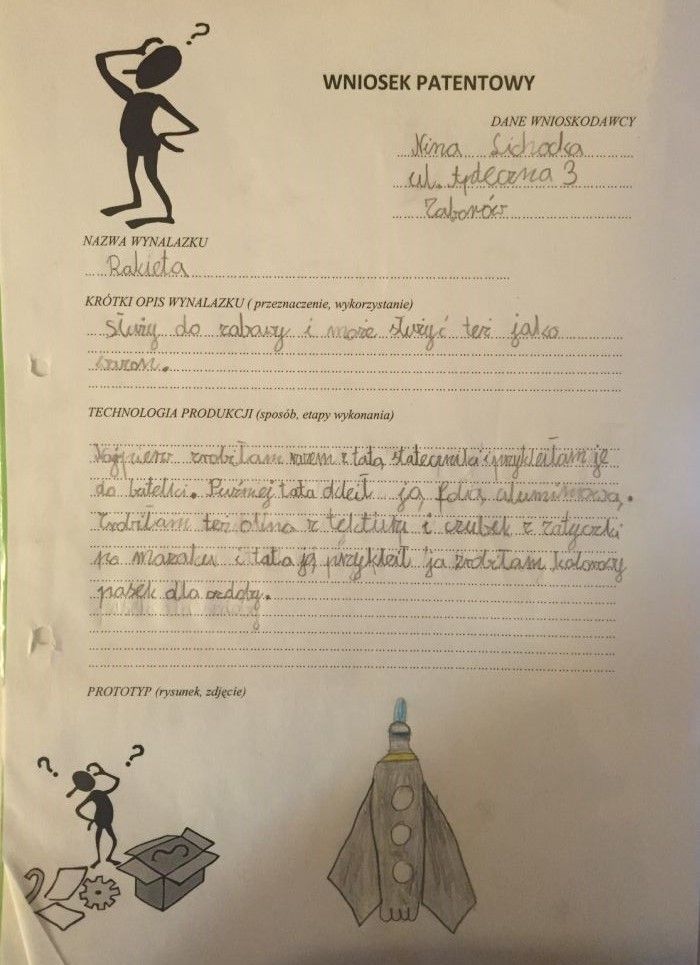 ?
WNIOSEK PATENTOWY
DANE WNIOSKODAWCY
Nina Lichocka
ul. 3
Zaborów
NAZWA WYNALAZKU
Rakieta
KRÓTKI OPIS WYNALAZKU ( przeznaczenie, wykorzystanie)
Służy do zabawy i może służyć też jako
wazon.
TECHNOLOGIA PRODUKCJI (sposób, etapy wykonania)
Najpierw zrobiłam razem z tatą stateczniki i przykleiłam je
do butelki. Puźniej tata okleił ją folią aluminiową.
Zrobiłam też okna z tektury i czubek z zatyczki
po mazaku i tata ją przykleił ja zrobiłam kolorowy
pasek dla ozdoby.
PROTOTYP (rysunek, zdjęcie)
? ?